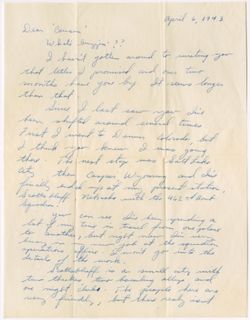 April 6, 1943
Dear "Cousin"
What's buzzin'??
I hav'n't gotten around to writing you
that letter I promised and over two
months have gone by. It seems longer
than that.
Since I last saw you I've
been shifted around several times
First I went to Denver Colorado but
I think you knew I was going
there. The next stop was Salt Lake
City then Casper Wyoming and I've
finally ended up at my present station,
Scottsbluff Nebraska with the 462nd
Squadron.
you can see I've been spending a
lot of my time in travel from one place
to another, but right now I'm
busy in my job at the squadron
operations office. I won't go into the
details of the work.
Scottsbluff is a small city with
two theaters, two bowling alleys and
one night club. The people here are
very friendly, but there really isn't